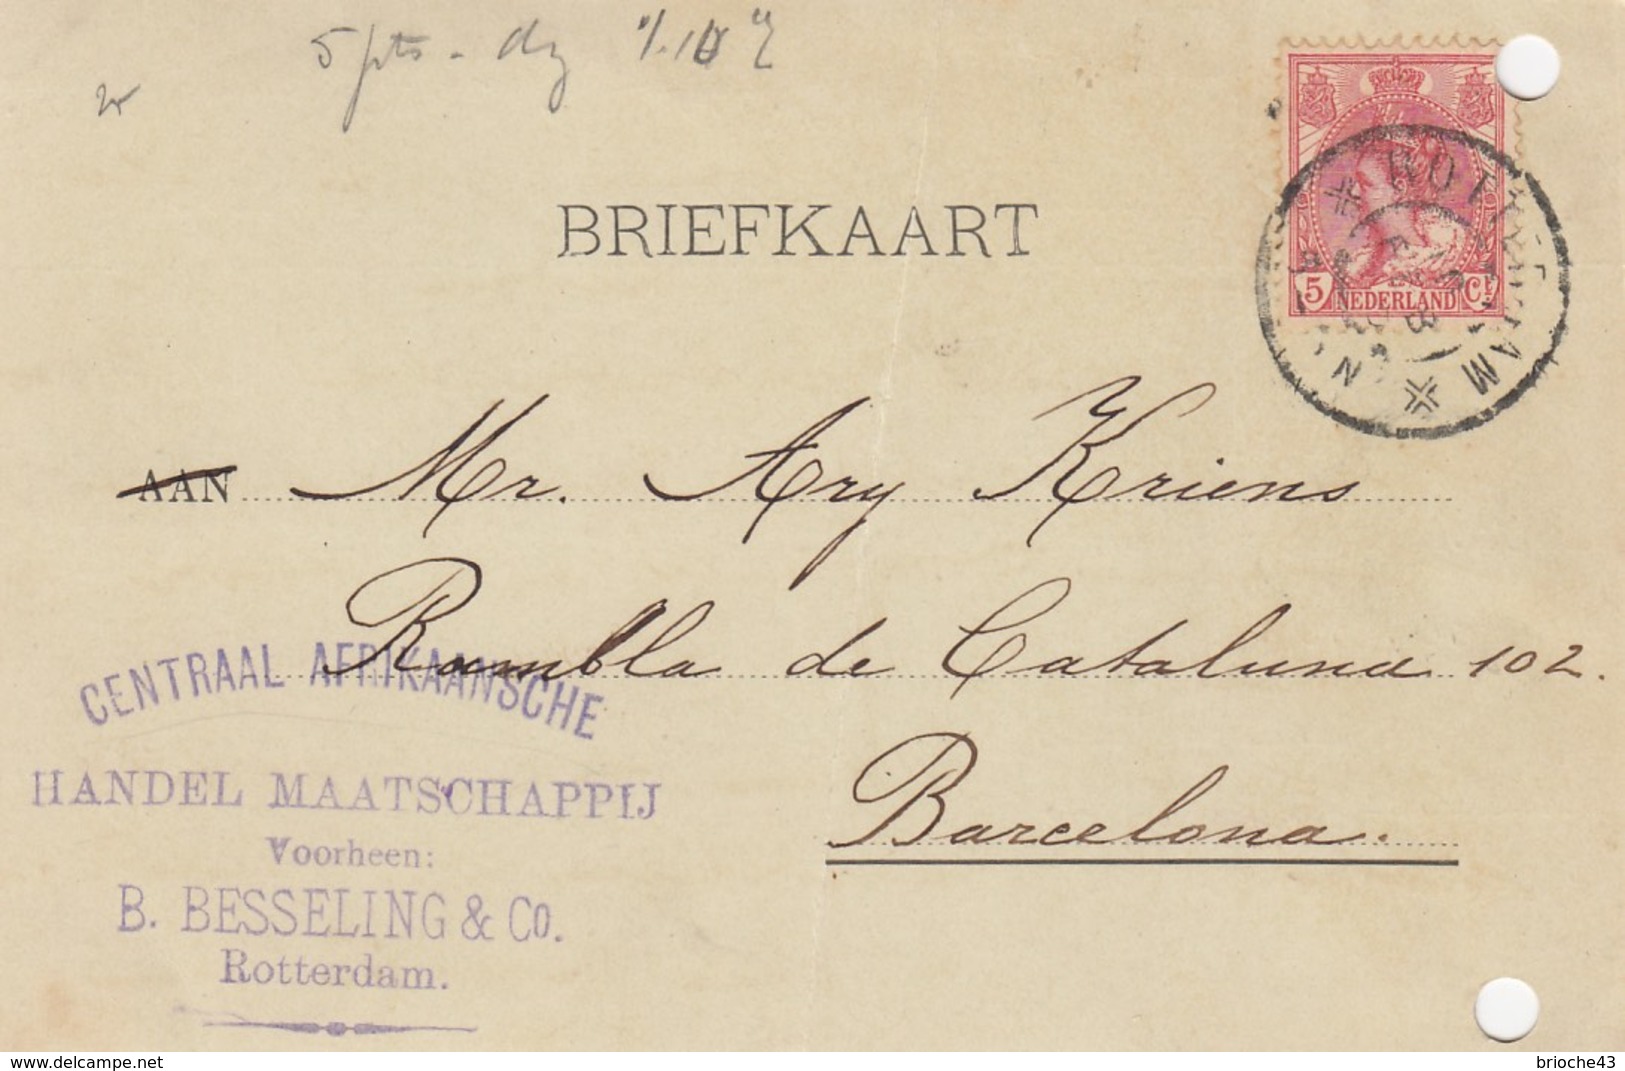 BRIEFKAART
5 Ct
NEDERLAND
ROTTERDAM
AAN Mr. Ary Kriens
Rambla de Cataluna 102.
Barcelona.
CENTRAAL AFRIKAANSCHE
HANDEL MAATSCHAPPIJ
Voorheen:
B. BESSELING & Co.
Rotterdam.
www.delcampe.net
brioche43